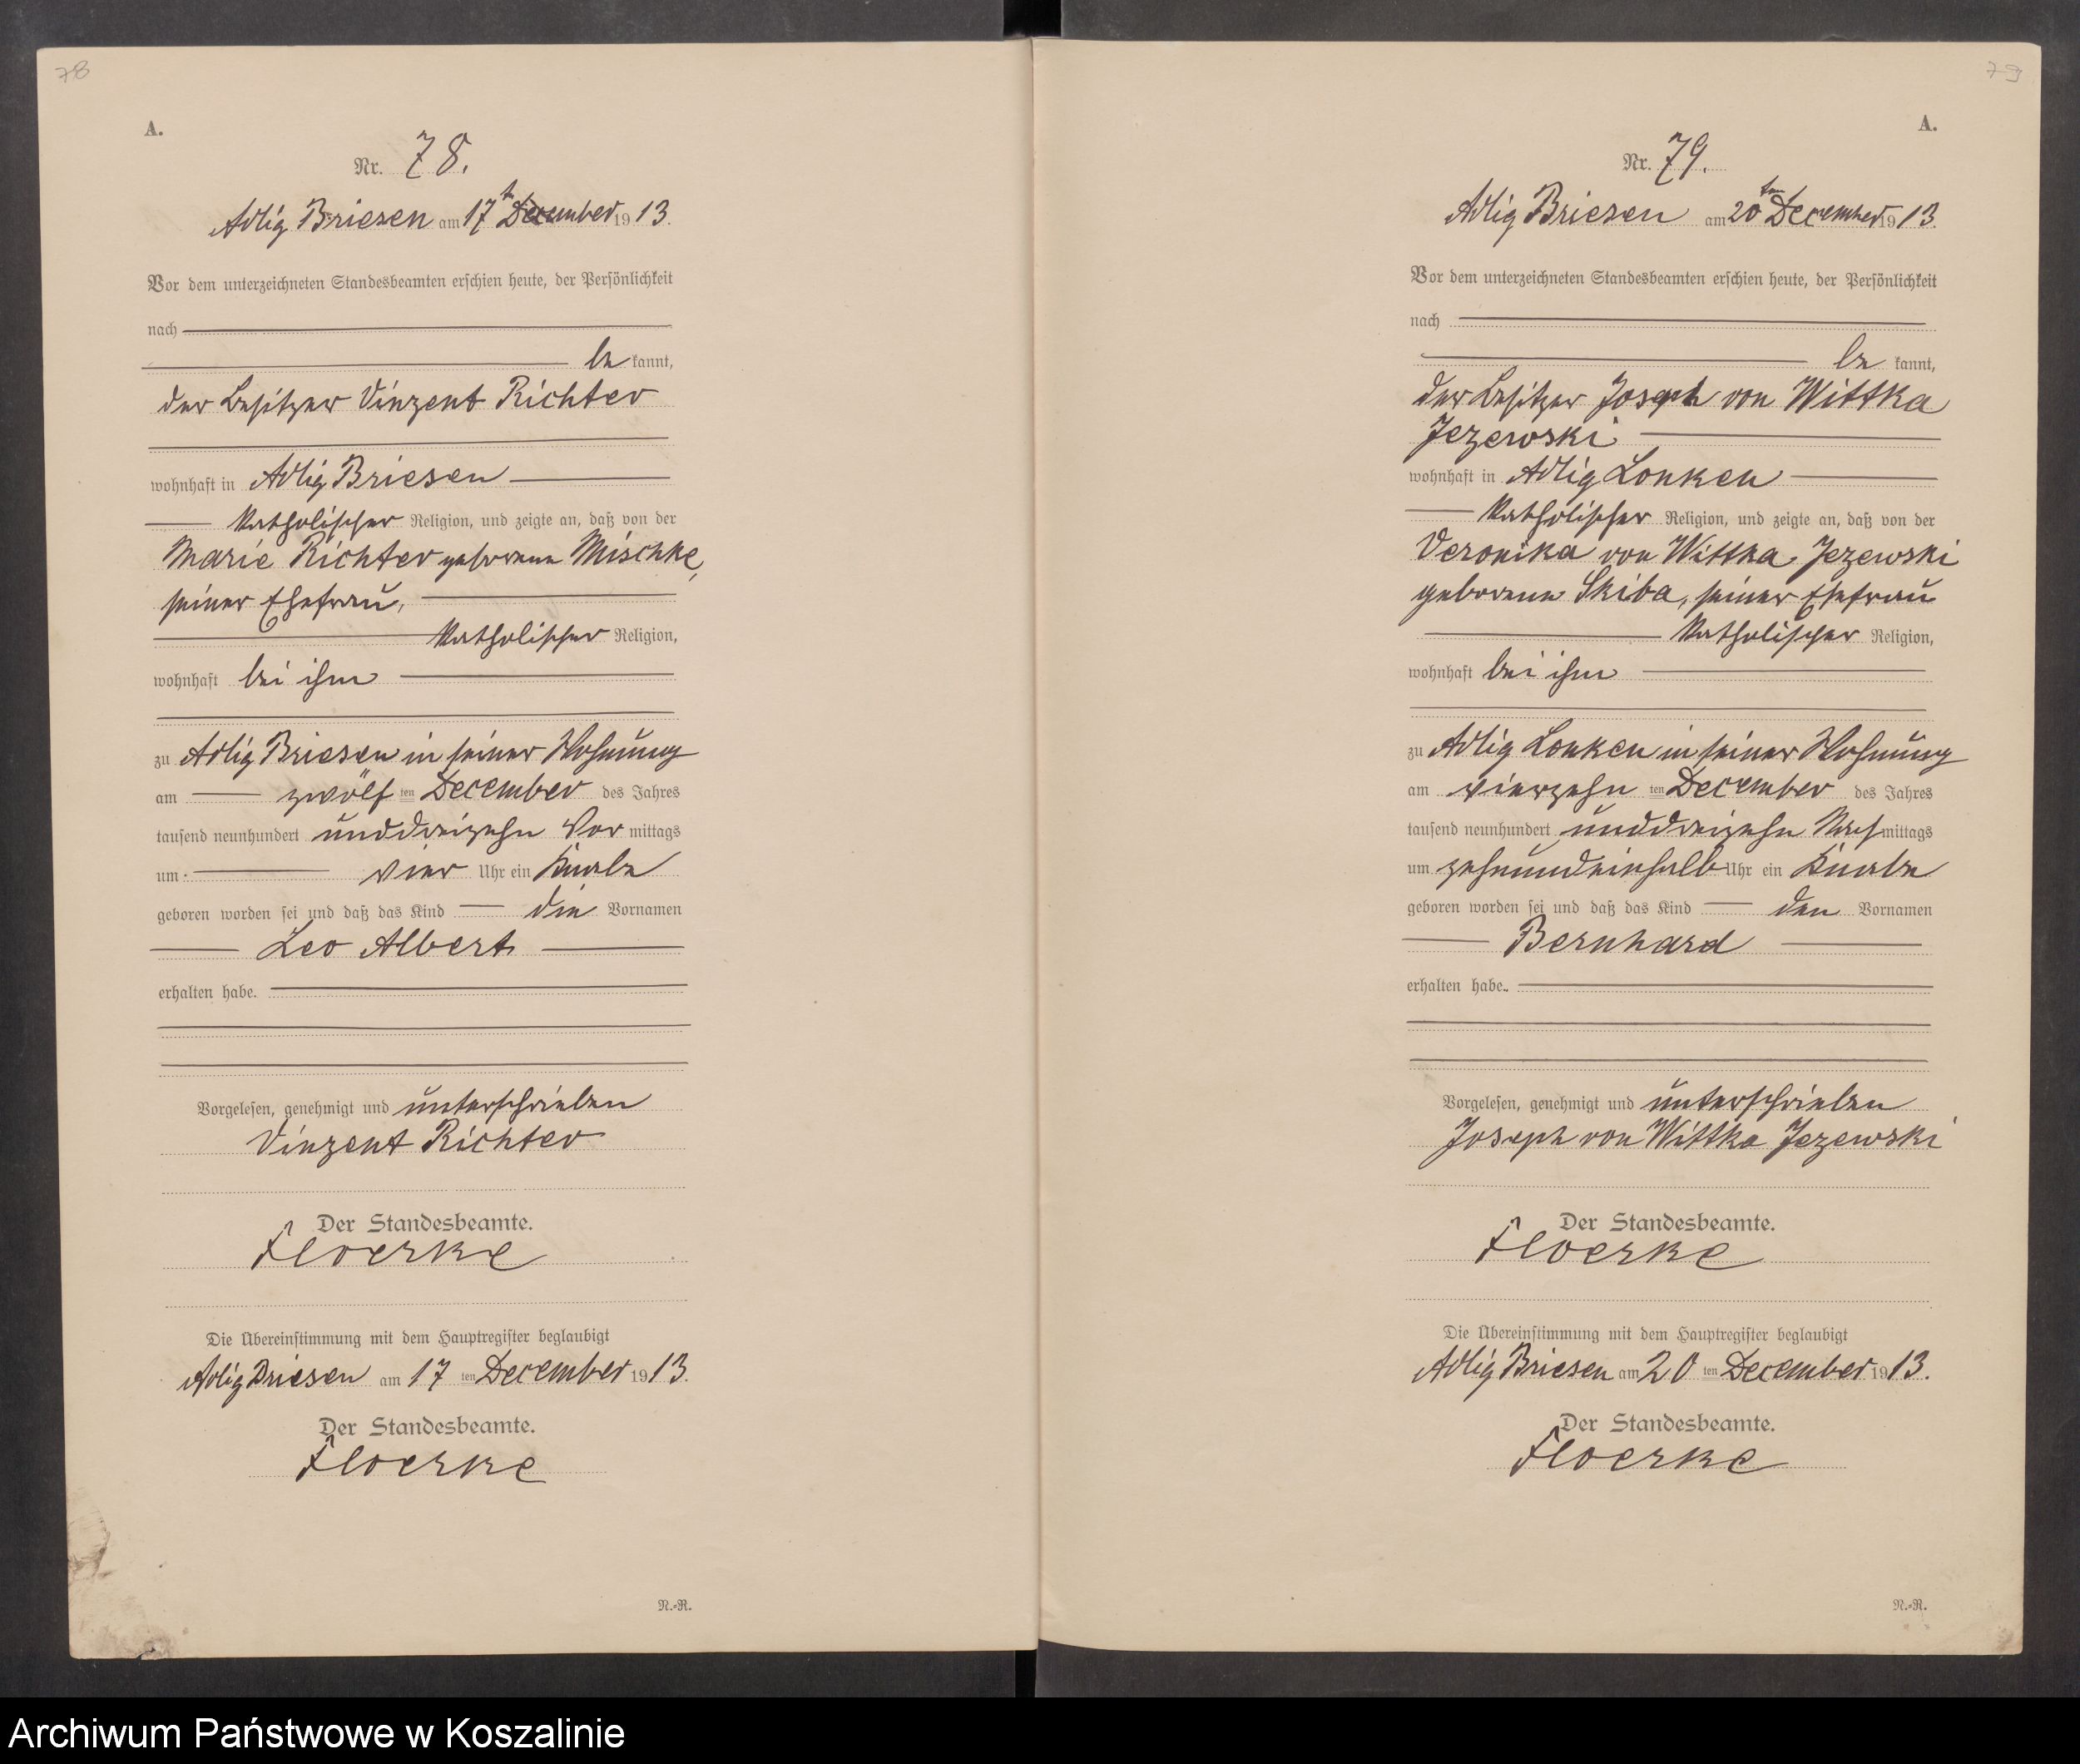 78
A.
Nr. 78.
Adlig Briesen am 17t December 1913.
Vor dem unterzeichneten Standesbeamten erschien heute, der Persönlichkeit
nach
be kannt,
der Besitzer Vinzent Richter
wohnhaft in Adlig Briesen
katholischer Religion, und zeigte an, daß von der
Marie Richter geborene Mischke,
seiner Ehefrau,
katholischer Religion,
wohnhaft bei ihm
zu Adlig Briesen in seiner Wohnung
am zwölf ten December des Jahres
tausend neunhundert unddreizehn Vor mittags
um vier Uhr ein Knabe
geboren worden sei und daß das Kind die Vornamen
Leo Albert
erhalten habe.
Vorgelesen, genehmigt und unterschrieben
Vinzent Richter
Der Standesbeamte.
Floerke
Die Übereinstimmung mit dem Hauptregister beglaubigt
Adlig Briesen am 17 ten December 1913.
Der Standesbeamte.
Floerke
N.-R.
79
A.
Nr. 79.
Adlig Briesen am 20ten December 1913.
Vor dem unterzeichneten Standesbeamten erschien heute, der Persönlichkeit
nach
be kannt,
der Besitzer Joseph von Wittka
Jezewski
wohnhaft in Adlig Lonken
katholischer Religion, und zeigte an, daß von der
Veronika von Wittka Jezewski
geborene Skiba, seiner Ehefrau
katholischer Religion,
wohnhaft bei ihm
zu Adlig Lonken in seiner Wohnung
am vierzehn ten December des Jahres
tausend neunhundert unddreizehn Nach mittags
um zehnundeinhalb Uhr ein Knabe
geboren worden sei und daß das Kind den Vornamen
Bernhard
erhalten habe.
Vorgelesen, genehmigt und unterschrieben
Joseph von Wittka Jezewski
Der Standesbeamte.
Floerke
Die Übereinstimmung mit dem Hauptregister beglaubigt
Adlig Briesen am 20 ten December 1913.
Der Standesbeamte.
Floerke
N.-R.
Archiwum Państwowe w Koszalinie